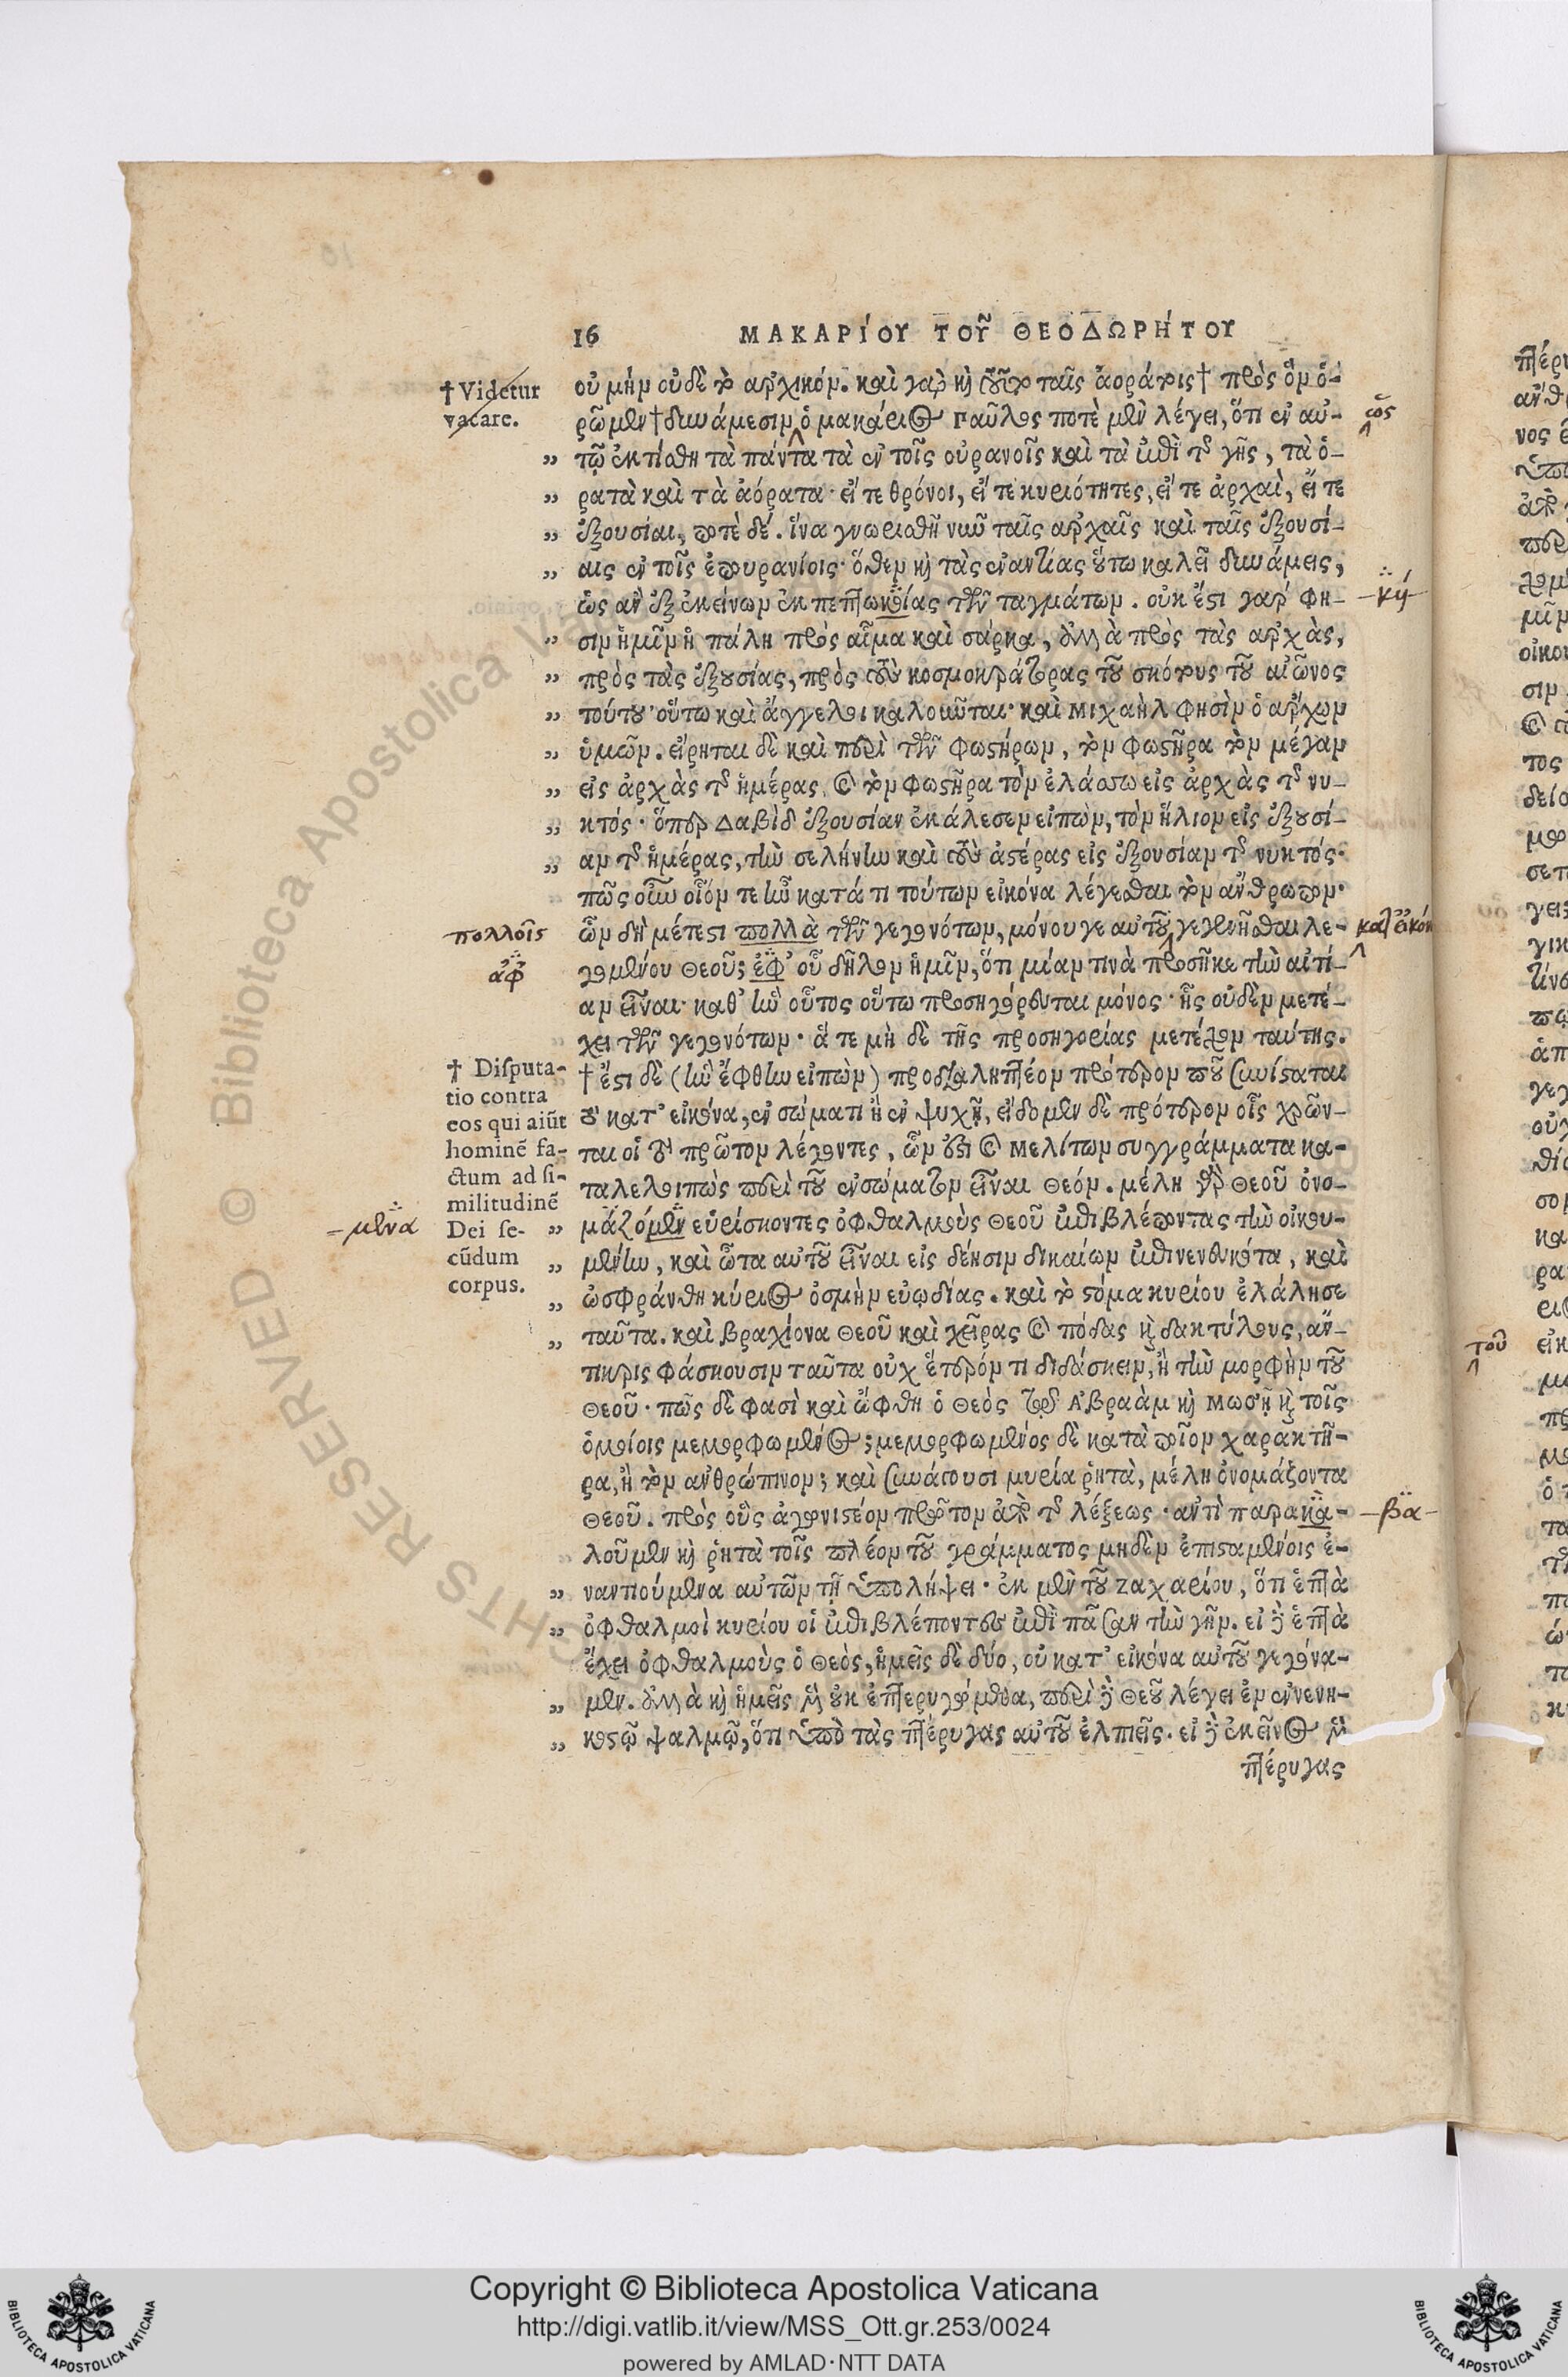 16 ΜΑΚΑΡΙΟΥ ΤΟΥ͂ ΘΕΟΔΩΡΗΤΟΥ
†Videtur
vacare.
οὐ μὴν οὐδὲ τὸ ἀρχικόν. καὶ γὰρ καὶ ταῖς ἀοράτοις† πρὸς ὃν ὁ-
ρῶμεν†δυνάμεσιν ὁ μακάριος Παῦλος ποτὲ μὲν λέγει, ὅτι ἐν αὐ-
τῷ ἐκτίσθη τὰ πάντα τὰ ἐν τοῖς οὐρανοῖς καὶ τὰ ἐπὶ τῆς γῆς, τὰ ὁ-
ρατὰ καὶ τὰ ἀόρατα· εἴτε θρόνοι, εἴτε κυριότητες, εἴτε ἀρχαὶ, εἴτε
ἐξουσίαι, ποτὲ δέ. ἵνα γνωρισθῇ νῦν ταῖς ἀρχαῖς καὶ ταῖς ἐξουσί-
αις ἐν τοῖς ἐπουρανίοις· ὅθεν καὶ τὰς ἐναντίας οὕτω καλεῖ δυνάμεις,
ὡς ἂν ἐξ ἐκείνων ἐκπεπτωκυίας τῶν ταγμάτων. οὐκ ἔστι γάρ φη-
σιν ἡμῖν ἡ πάλη πρὸς αἷμα καὶ σάρκα, ἀλλὰ πρὸς τὰς ἀρχὰς,
πρὸς τὰς ἐξουσίας, πρὸς τοὺς κοσμοκράτορας τοῦ σκότους τοῦ αἰῶνος
τούτου· οὕτω καὶ ἄγγελοι καλοῦνται· καὶ Μιχαὴλ φησὶν ὁ ἄρχων
ὑμῶν. εἴρηται δὲ καὶ περὶ τῶν φωστήρων, τὸν φωστῆρα τὸν μέγαν
εἰς ἀρχὰς τῆς ἡμέρας, καὶ τὸν φωστῆρα τὸν ἐλάσσω εἰς ἀρχὰς τῆς νυ-
κτός· ὅπερ Δαβὶδ ἐξουσίαν ἐκάλεσεν εἰπὼν, τὸν ἥλιον εἰς ἐξουσί-
αν τῆς ἡμέρας, τὴν σελήνην καὶ τοὺς ἀστέρας εἰς ἐξουσίαν τῆς νυκτός·
πῶς οὖν οἷόν τε ἦν κατά τι τούτων εἰκόνα λέγεσθαι τὸν ἄνθρωπον·
πολλοῖς
ὧν δὴ μέτεστι πολλὰ τῶν γεγονότων, μόνου γε αὐτοῦ γεγενῆσθαι λε-
ἀφ
γομένου Θεοῦ; ἐφ’ οὗ δῆλον ἡμῖν, ὅτι μίαν τινὰ προσῆκε τὴν αἰτί-
αν εἶναι· καθ’ ἣν οὗτος οὕτω προσηγόρευται μόνος· ἧς οὐδὲν μετέ-
χει τῶν γεγονότων· ἅτε μὴ δὲ τῆς προσηγορίας μετέχον ταύτης.
† Disputa-
tio contra
eos qui aiũt
hominẽ fa-
ctum ad si-
militudinẽ
Dei se-
cũdum
corpus.
†ἔστι δὲ (ἣν ἔφθην εἰπὼν) προδιαληπτέον πρότερον ποῦ συνίσταται
τὸ κατ’ εἰκόνα, ἐν σώματι ἢ ἐν ψυχῇ, εἴδομεν δὲ πρότερον οἷς χρῶν-
ται οἱ τὸ πρῶτον λέγοντες, ὧν ἐστι καὶ Μελίτων συγγράμματα κα-
ταλελοιπὼς περὶ τοῦ ἐνσώματον εἶναι Θεόν. μέλη γὰρ Θεοῦ ὀνο-
-μενα
μάζομεν εὑρίσκοντες ὀφθαλμοὺς Θεοῦ ἐπιβλέποντας τὴν οἰκου-
μένην, καὶ ὦτα αὐτοῦ εἶναι εἰς δέησιν δικαίων ἐπινενευκότα, καὶ
ὠσφράνθη κύριος ὀσμὴν εὐωδίας. καὶ τὸ στόμα κυρίου ἐλάλησε
ταῦτα. καὶ βραχίονα Θεοῦ καὶ χεῖρας καὶ πόδας καὶ δακτύλους, ἄν-
τικρις φάσκουσιν ταῦτα οὐχ ἕτερόν τι διδάσκειν, ἢ τὴν μορφὴν τοῦ
Θεοῦ· πῶς δὲ φασὶ καὶ ὤφθη ὁ Θεὸς τῷ Ἀβραὰμ καὶ Μωσῇ καὶ τοῖς
ὁμοίοις μεμορφωμένος; μεμορφωμένος δὲ κατὰ ποῖον χαρακτῆ-
ρα, ἢ τὸν ἀνθρώπινον; καὶ συνάγουσι μυρία ῥητὰ, μέλη ὀνομάζοντα
Θεοῦ. πρὸς οὓς ἀγωνιστέον πρῶτον ἀπὸ τῆς λέξεως· ἀντιπαρακα-
-βα-
λοῦμεν καὶ ῥητὰ τοῖς πλέον τοῦ γράμματος μηδὲν ἐπισταμένοις ἐ-
ναντιούμενα αὐτῶν τῇ ὑπολήψει· ἐκ μὲν τοῦ Ζαχαρίου, ὅτι ἑπτὰ
ὀφθαλμοὶ κυρίου οἱ ἐπιβλέποντες ἐπὶ πᾶσαν τὴν γῆν. εἰ δὲ ἑπτὰ
ἔχει ὀφθαλμοὺς ὁ Θεὸς, ἡμεῖς δὲ δύο, οὐ κατ’ εἰκόνα αὐτοῦ γεγόνα-
μεν. ἀλλὰ καὶ ἡμεῖς μὲν οὐκ ἐπτερυγώμεθα, περὶ δὲ Θεοῦ λέγει ἐν ἐννενη-
κοστῷ ψαλμῷ, ὅτι ὑπὸ τὰς πτέρυγας αὐτοῦ ἐλπιεῖς. εἰ δὲ ἐκεῖνος μὲν
πτέρυγας
Copyright © Biblioteca Apostolica Vaticana
http://digi.vatlib.it/view/MSS_Ott.gr.253/0024
powered by AMLAD·NTT DATA